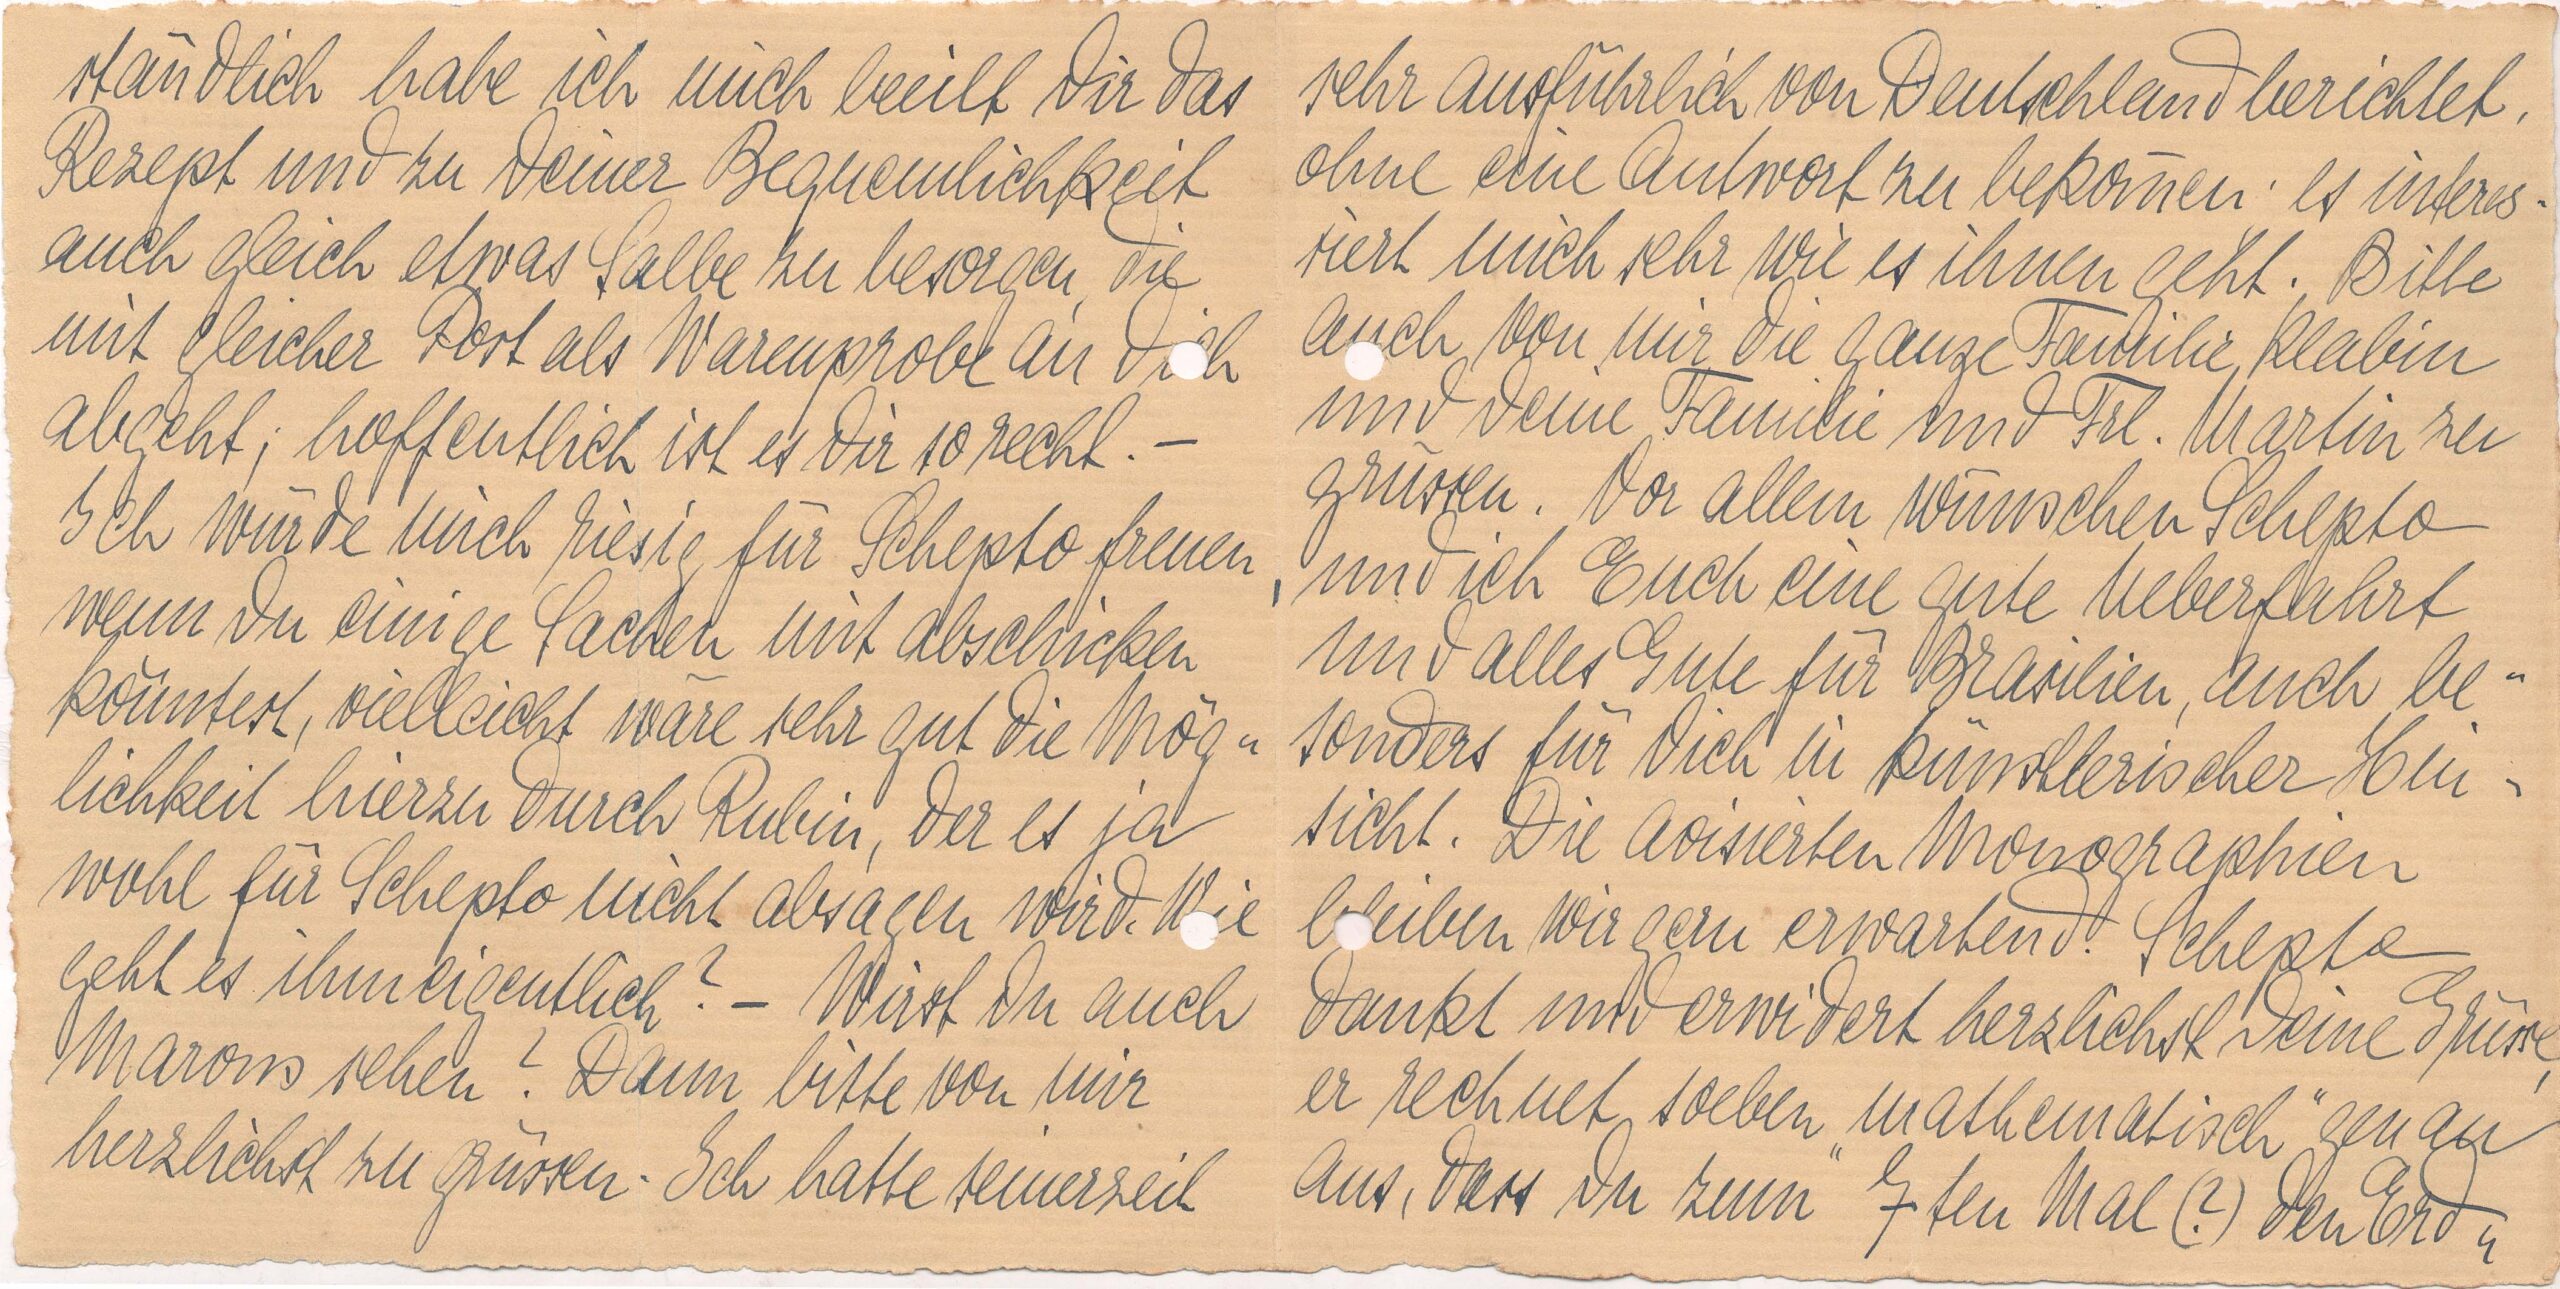 ständlich habe ich mich beeilt Dir das
Rezept und zu Deiner Bequemlichkeit
auch gleich etwas Salbe zu besorgen, die
mit gleicher Post als Warenprobe an Dich
abgeht; hoffentlich ist es Dir so recht. –
Ich würde mich riesig für Schepto freuen,
wenn Du einige Sachen mit abschicken
könntest, vielleicht wäre sehr gut die Mög-
lichkeit hierzu durch Rubin, der es ja
wohl für Schepto nicht absagen wird. Wie
geht es ihm eigentlich? – Wirst Du auch
Marons sehen? Dann bitte von mir
herzlichst zu grüssen. Ich hatte seinerzeit
sehr ausführlich von Deutschland berichtet,
ohne eine Antwort zu bekom̄en; es interes-
siert mich sehr wie es ihnen geht. Bitte
auch von mir die ganze Familie Klabin
und Deine Familie und Frl. Martin zu
grüssen. Vor allem wünschen Schepto
und ich Euch eine gute Ueberfahrt
und alles Gute für Brasilien, auch be-
sonders für Dich in künstlerischer Hin-
sicht. Die avisierten Monographien
bleiben wir gern erwartend. Schepto
dankt und erwidert herzlichst Deine Grüsse,
er rechnet soeben „mathematisch" genau
aus, dass Du zum „7ten Mal (?) den Erd-